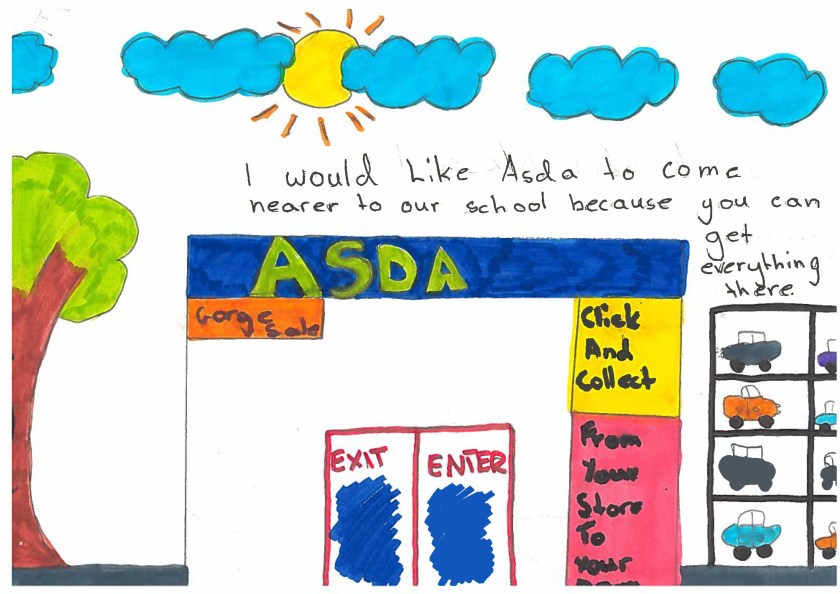 I would Like Asda to come
nearer to our school because you can
get
everything
there.
ASDA
George
Sale
Click
And
Collect
From
Your
Store
To
Your
EXIT
ENTER